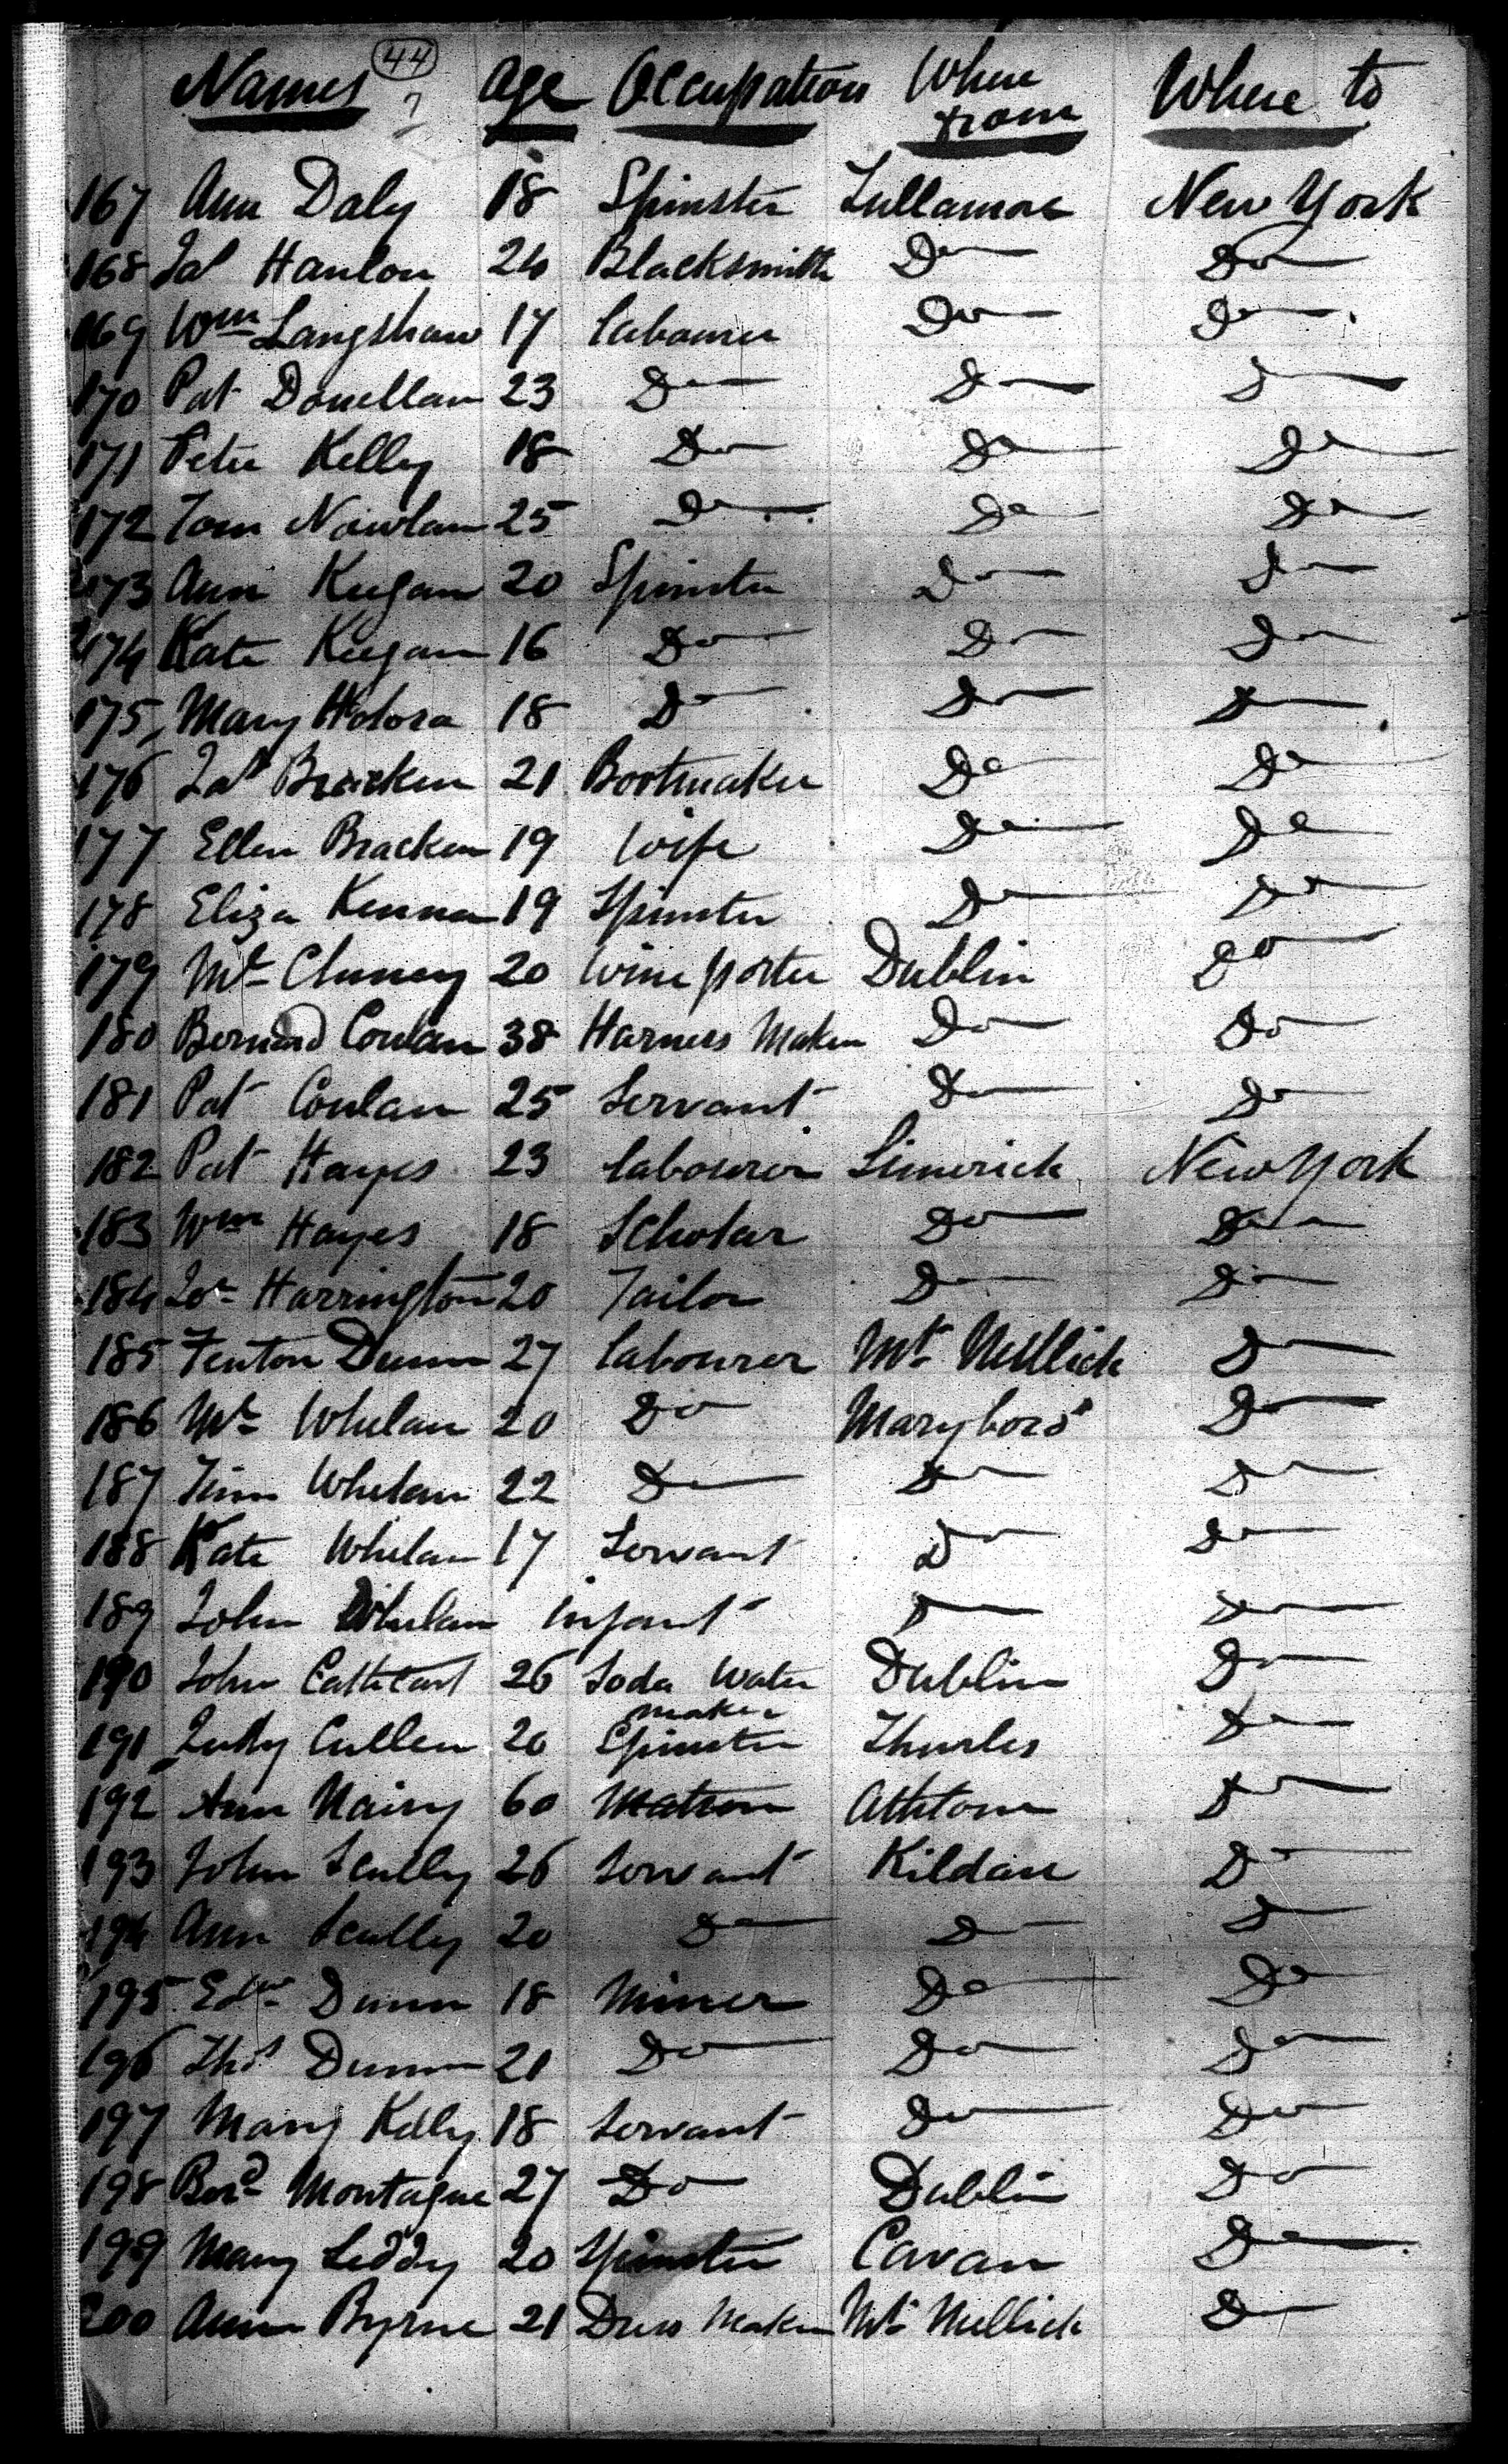 44
Names Age Occupation Where from Where to
167 Ann Daly 18 Spinster Tullamore New York
168 Jas Hanlon 24 Blacksmith Do Do
169 Wm Langshaw 17 labourer Do Do
170 Pat Donellan 23 Do Do Do
171 Peter Kelly 18 Do Do Do
172 Tom Nowlan 25 Do Do Do
173 Ann Keegan 20 Spinster Do Do
174 Kate Keegan 16 Do Do Do
175 Mary 18 Do Do Do
176 Jas Bracken 21 Bootmaker Do Do
177 Ellen Bracken 19 wife Do Do
178 Eliza Kennan 19 Spinster Do Do
179 Mt 20 wine porter Dublin Do
180 Bernard Conlan 38 Harness Maker Do Do
181 Pat Conlan 25 Servant Do Do
182 Pat Hayes 23 labourer Limerick New York
183 Wm Hayes 18 Scholar Do Do
184 Jos Harrington 20 Tailor Do Do
185 Fenton Dunn 27 labourer Mt Mellick Do
186 Mt Whelan 20 Do Maryboro Do
187 Tim Whelan 22 Do Do Do
188 Kate Whelan 17 Servant Do Do
189 John Whelan infant Do Do
190 John Cathcart 26 Soda Water maker Dublin Do
191 Cullen 20 Spinster Thurles Do
192 Ann Nairy 60 Matron Athlone Do
193 John Scully 26 Servant Kildare Do
194 Ann Scully 20 Do Do Do
195 Edw Dunn 18 Miner Do Do
196 Thos Dunn 21 Do Do Do
197 Mary Kelly 18 Servant Do Do
198 Berd Montague 27 Do Dublin Do
199 Mary Leddy 20 Spinster Cavan Do
200 Ann Byrne 21 Dress Maker Mt Mellick Do